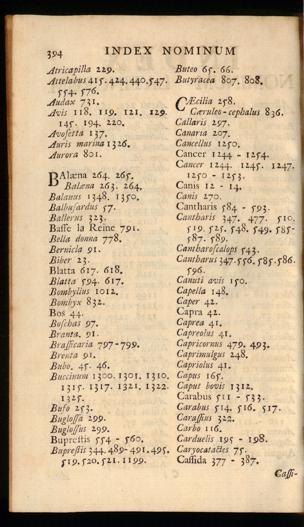 394 INDEX NOMINUM
Atricapilla 229.
Attelabus 415. 424. 440. 547.
554. 576.
Audax 731.
Avis 118. 119. 121. 129.
145. 194. 220.
Avosetta 137.
Auris marina 1326.
Aurora 801.
BAlæna 264. 265.
Balæna 263. 264.
Balanus 1348. 1350.
Balbusardus 57.
Ballerus 323.
Basse la Reine 791.
Bella donna 778.
Bernicla 91.
Biber 23.
Blatta 617. 618.
Blatta 594. 617.
Bombylius 1012.
Bombyx 832.
Bos 44.
Boschas 97.
Branta. 91.
Brassicaria 797-799.
Brenta 91.
Bubo. 45. 46.
Buccinum 1300. 1301. 1310.
1315. 1317. 1321. 1322.
1325.
Bufo 253.
Buglossa 299.
Buglossus 299.
Buprestis 554 - 560.
Buprestis 344. 489-491. 495.
519. 520. 521. 1199.
Buteo 65. 66.
Butyracea 807. 808.
CÆcilia 258.
Cæruleo-cephalus 836.
Callaris 297.
Canaria 207.
Cancellus 1250.
Cancer 1244 - 1254.
Cancer 1244. 1245. 1247.
1250 - 1253.
Canis 12 - 14.
Canis 270.
Cantharis 584 - 593.
Cantharis 347. 477. 510.
519. 525. 548. 549. 585-
587. 589.
Cantharoscalops 543.
Cantharus 347. 556. 585. 586.
596.
Canuti avis 150.
Capella 148.
Caper 42.
Capra 42.
Caprea 41.
Capreolus 41.
Capricornus 479. 493.
Caprimulgus 248.
Capriolus 41.
Capus 165.
Caput bovis 1312.
Carabus 511 - 533.
Carabus 514. 516. 517.
Carassius 322.
Carbo 116.
Carduelis 195 - 198.
Caryocatactes 75.
Cassida 377 - 387.
Cassi-